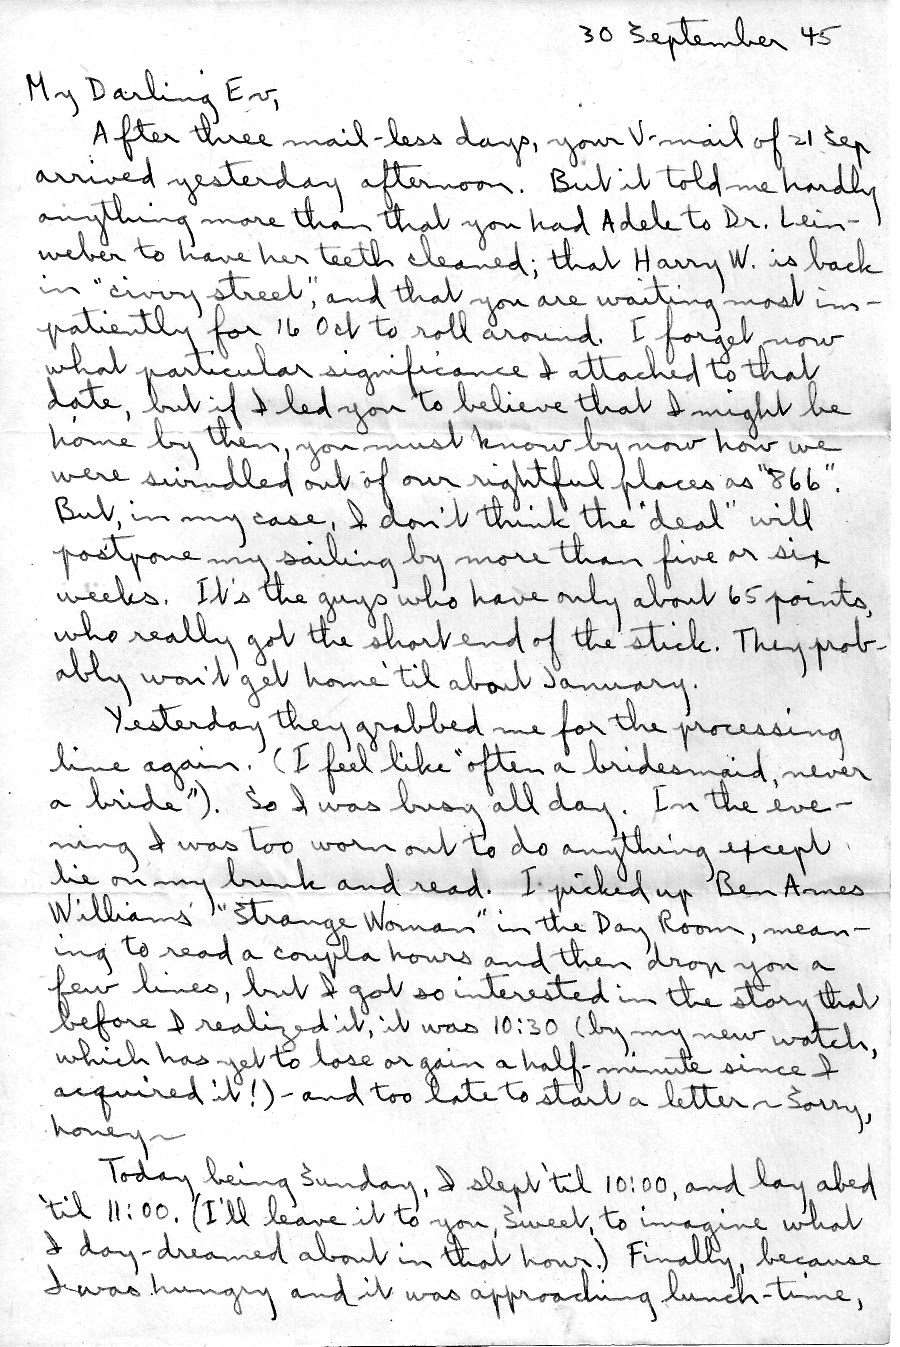 30 September 45
My Darling Ev,
After three mail-less days, your V-mail of 21 Sep
arrived yesterday afternoon. But it told me hardly
anything more than that you had Adele to Dr. Lein-
weber to have her teeth cleaned; that Harry W. is back
in "civvy street", and that you are waiting most im-
patiently for 16 Oct to roll around. I forget now
what particular significance I attached to that
date, but if I led you to believe that I might be
home by then, you must know by now how we
were swindled out of our rightful places as "866".
But, in my case, I don't think the "deal" will
postpone my sailing by more than five or six
weeks. It's the guys who have only about 65 points,
who really got the short end of the stick. They prob-
ably won't get home 'til about January.
Yesterday they grabbed me for the processing
line again. (I feel like "often a bridesmaid, never
a bride"). So I was busy all day. In the eve-
ning I was too worn out to do anything except
lie on my bunk and read. I picked up Ben Ames
Williams' "Strange Woman" in the Day Room, mean-
ing to read a coupla hours and then drop you a
few lines, but I got so interested in the story that
before I realized it, it was 10:30 (by my new watch,
which has yet to lose or gain a half-minute since I
acquired it!) - and too late to start a letter ~ Sorry,
honey ~
Today being Sunday, I slept 'til 10:00, and lay abed
'til 11:00. (I'll leave it to you, Sweet, to imagine what
I day-dreamed about in that hour.) Finally, because
I was hungry and it was approaching lunch-time,